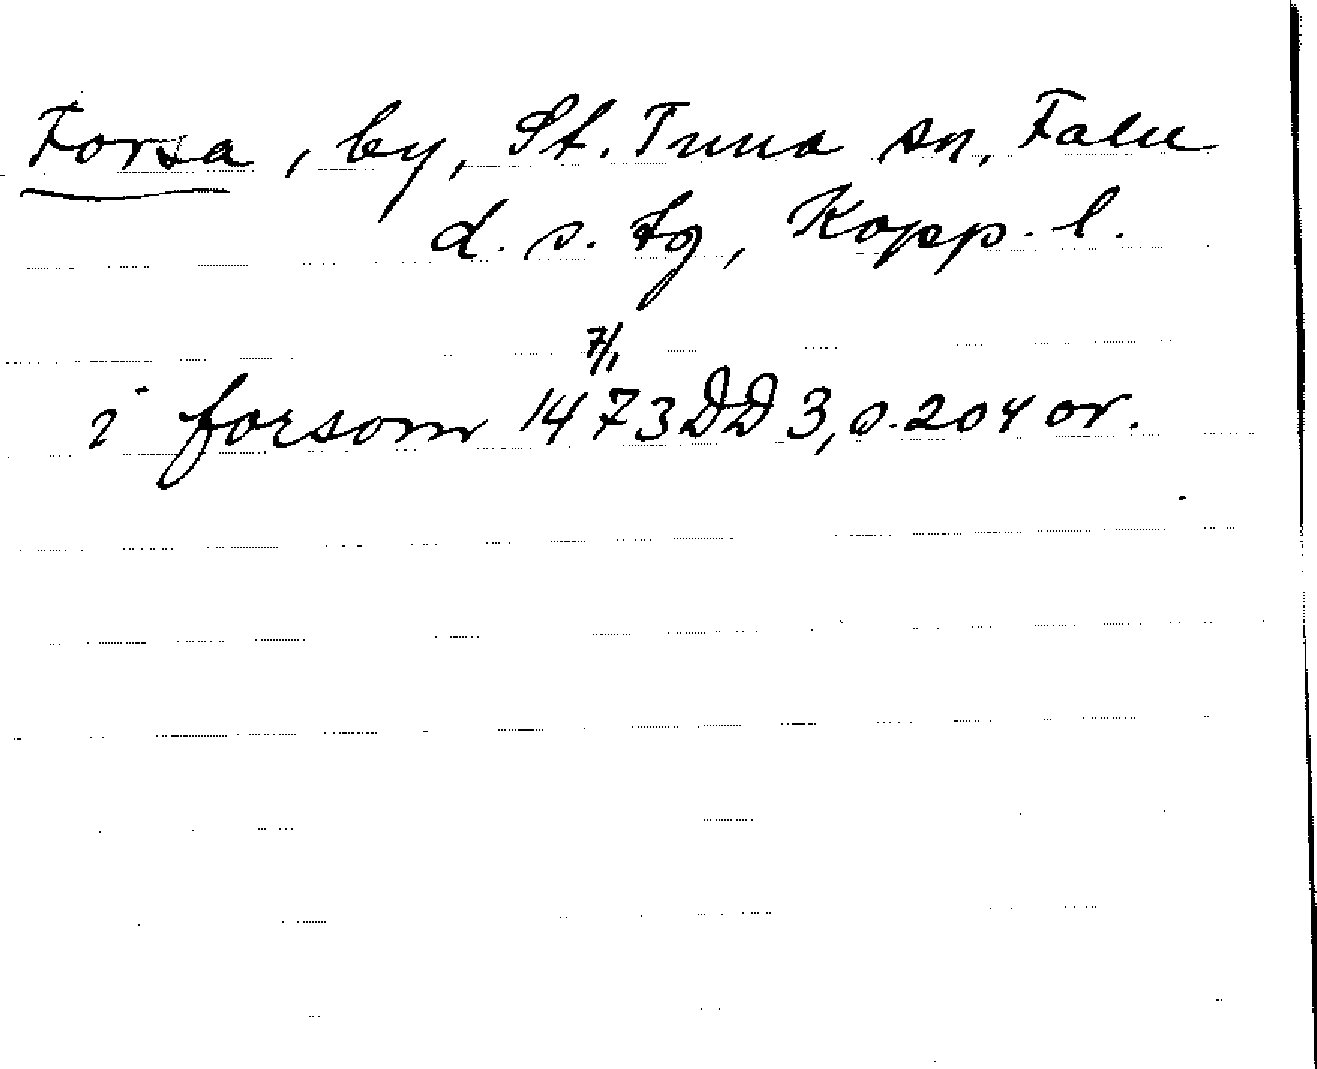 Forsa, by, St. Tuna sn, Falu
d. s. tg, Kopp. l.
7/1
i forsom 1473 DD 3, s. 204 or.